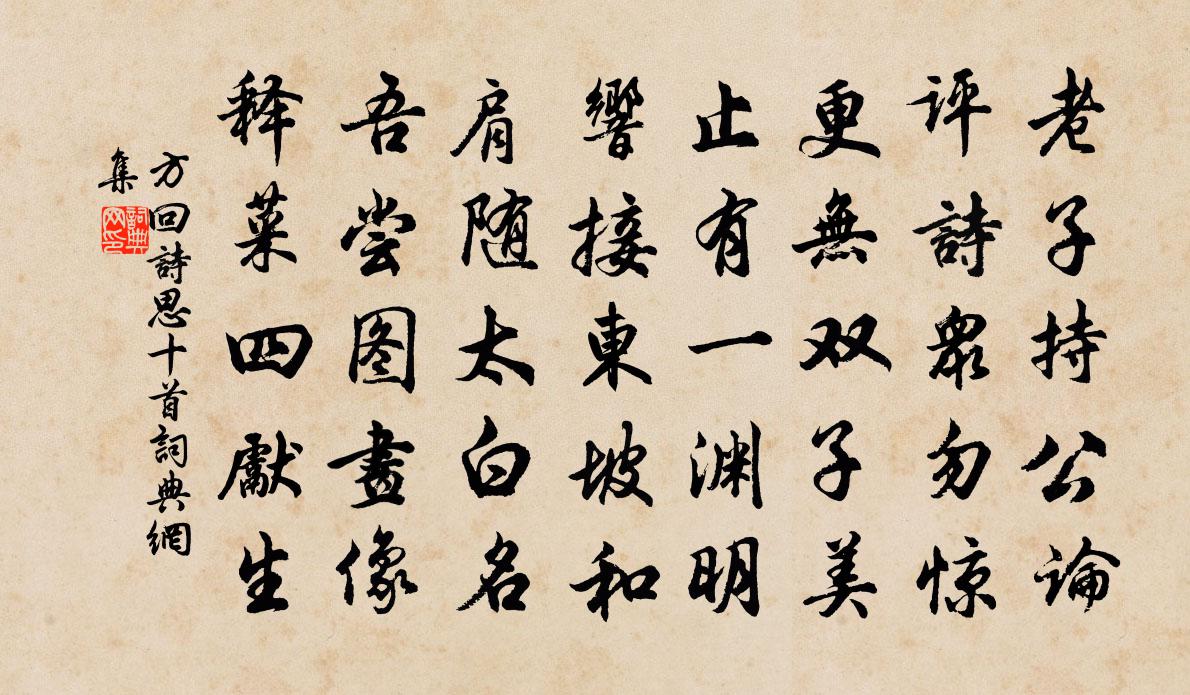 老子持公論
评詩眾勿惊
更無双子美
止有一渊明
響接東坡和
肩随太白名
吾尝图畫像
释菜四獻生
方回詩思十首詞典網
集
詞典
网印